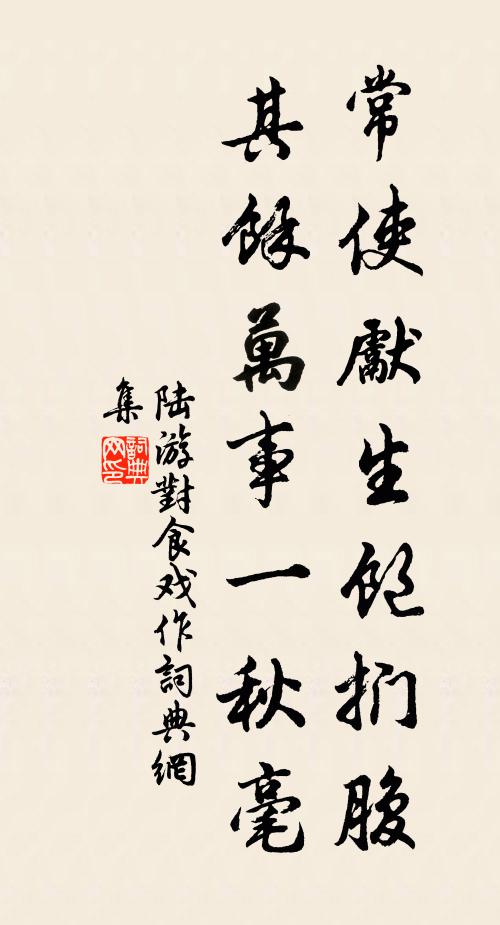 常使獻生飽捫腹
其餘萬事一秋毫
陆游對食戏作詞典網
集
詞典
网印